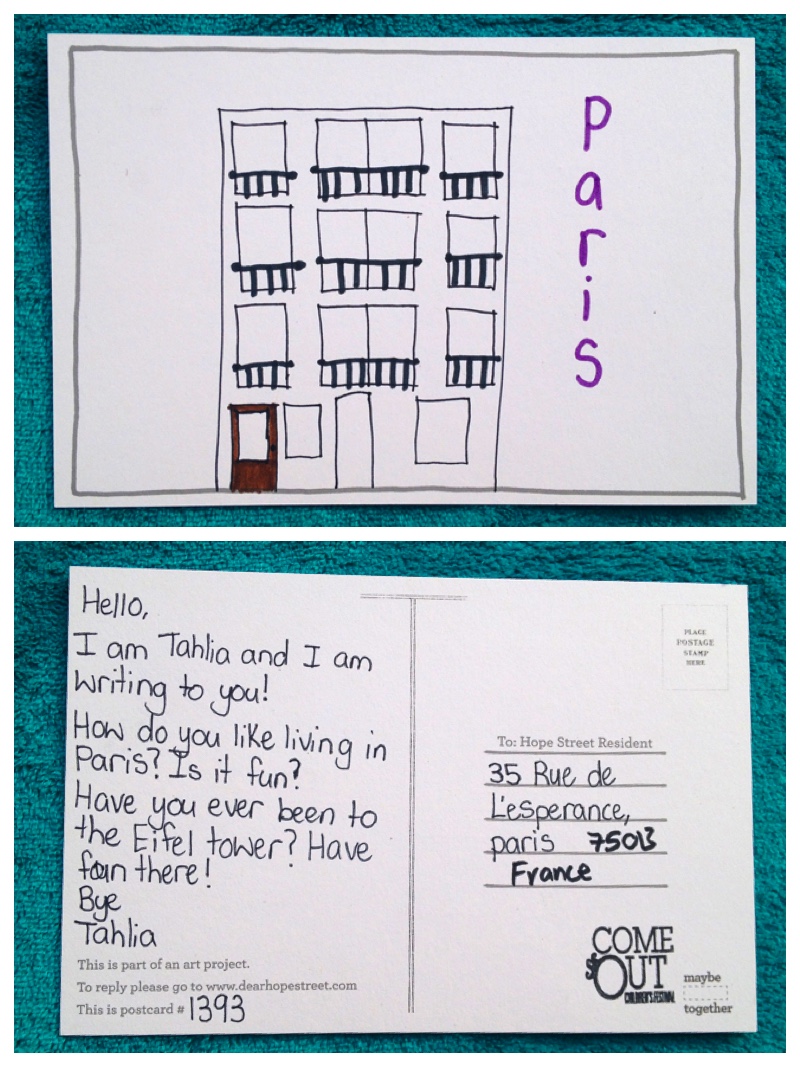 Paris
Hello,
I am Tahlia and I am
writing to you!
How do you like living in
Paris? Is it fun?
Have you ever been to
the Eifel tower? Have
fun there!
Bye
Tahlia
This is part of an art project.
To reply please go to www.dearhopestreet.com
This is postcard # 1393
PLACE
POSTAGE
STAMP
HERE
To: Hope Street Resident
35 Rue de
L'esperance,
paris 75013
France
COME
OUT
CHILDREN'S FESTIVAL
maybe
together